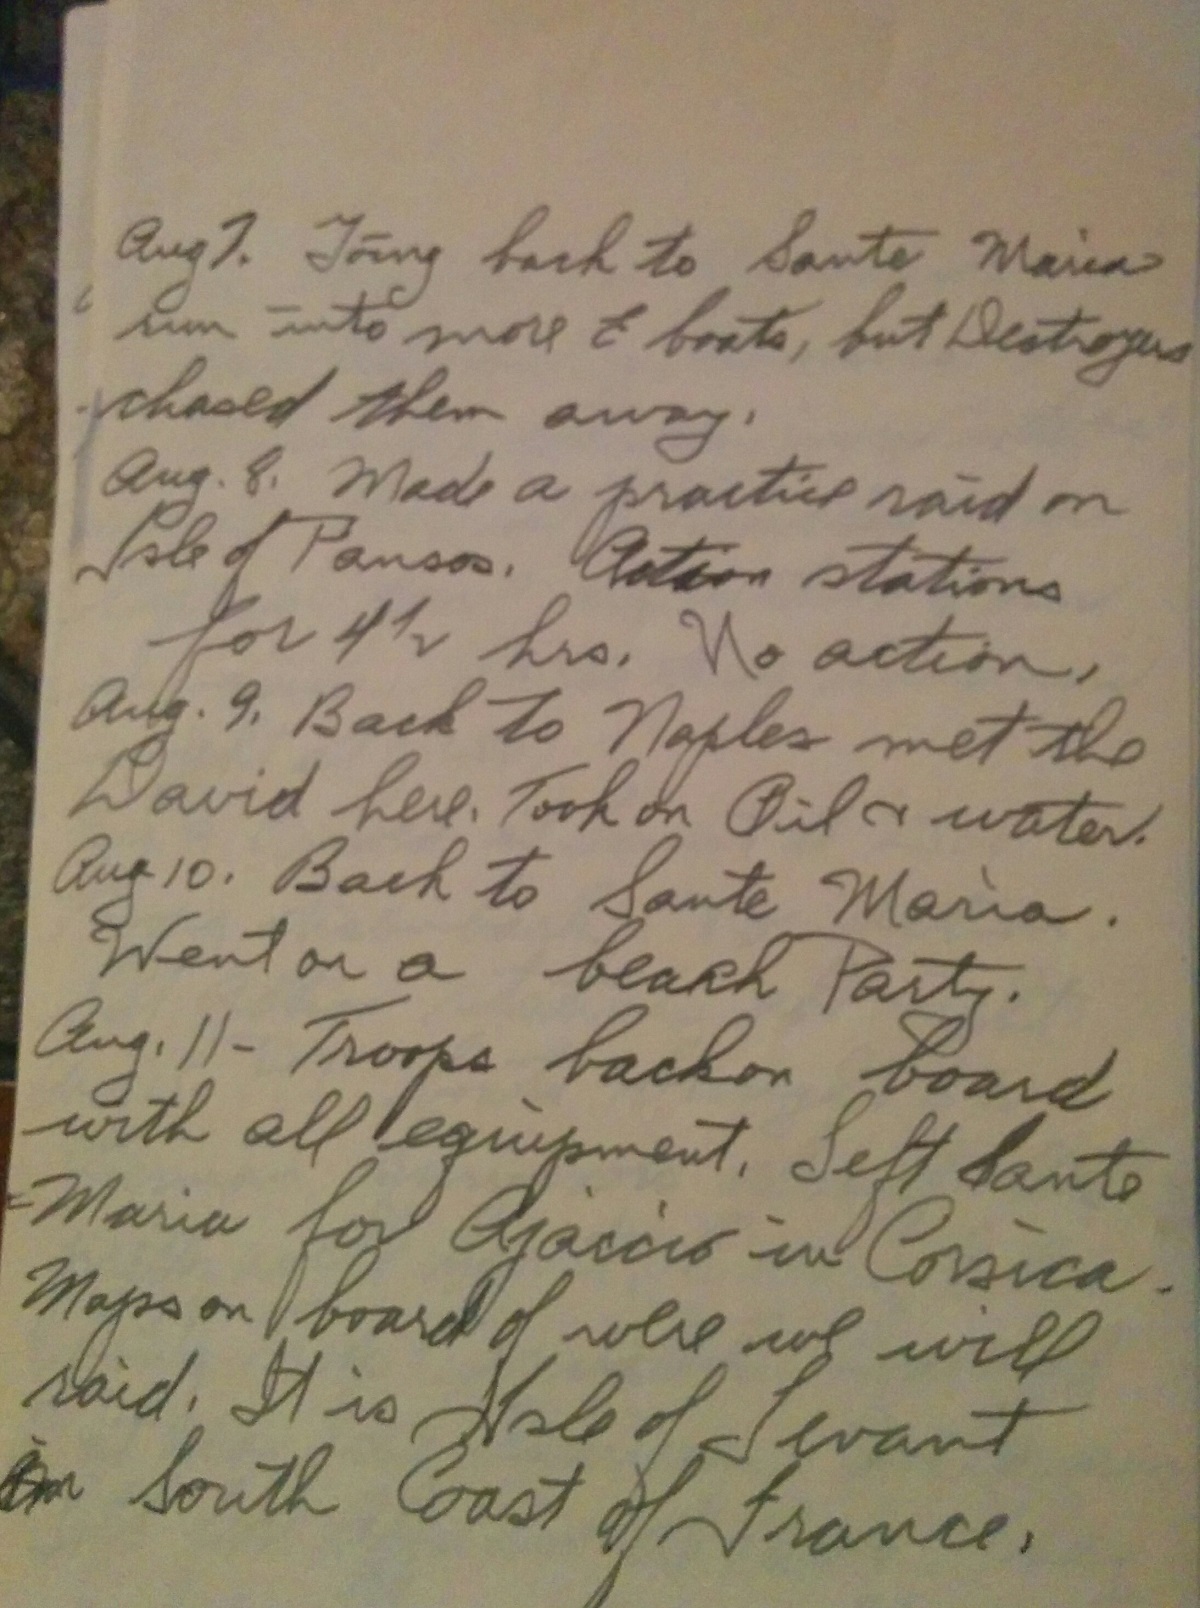 Aug 7. Going back to Sante Maria
run into more E boats, but Destroyers
chased them away.
Aug. 8. Made a practice raid on
Isle of Pansos. Action stations
for 4 1/2 hrs. No action.
Aug. 9. Back to Naples met the
David here. Took on Oil & water.
Aug 10. Back to Sante Maria.
Went on a beach Party.
Aug. 11- Troops back on board
with all equipment. Left Sante
Maria for Ajaccio in Corsica.
Maps on board of were we will
raid. It is Isle of Levant
in South Coast of France.